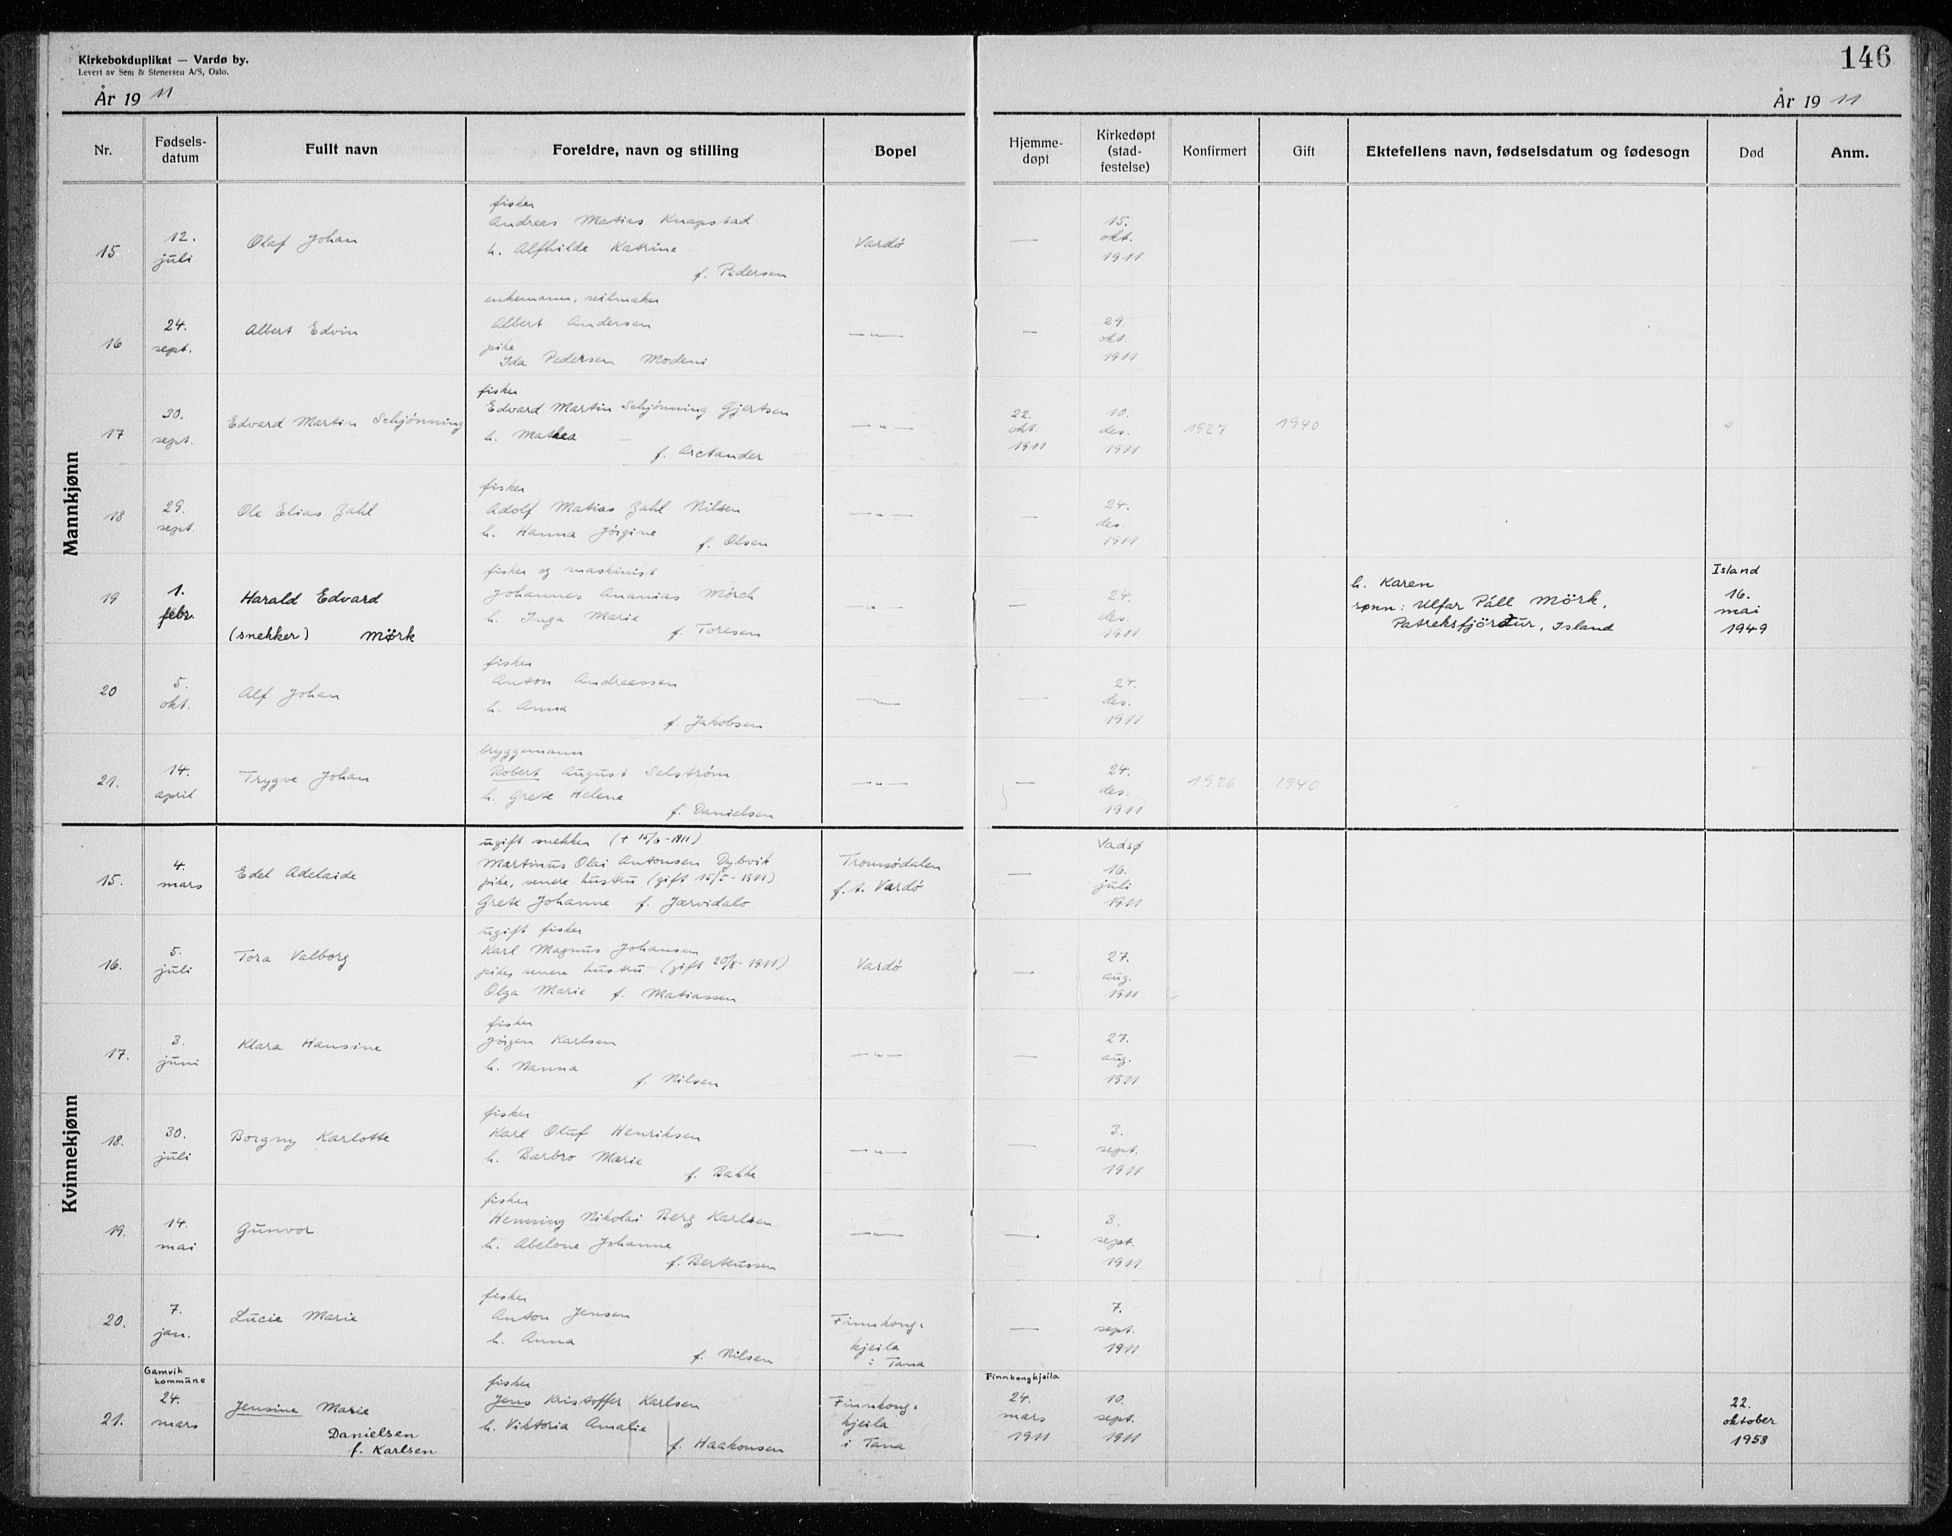 Kirkebokduplikat — Vardø by.
Levert av Sem & Stenersen A/S, Oslo.
146
År 19 11
År 19 11
Nr. Fødsels-datum Fullt navn Foreldre, navn og stilling Bopel Hjemme-døpt Kirkedøpt (stad-festelse) Konfirmert Gift Ektefellens navn, fødselsdatum og fødesogn Død Anm.
Mannkjønn
fisker
15 12. juli Olaf Johan Andreas Matias Knapstad
h. Alfhilde Katrine Vardö — 15. okt. 1911
f. Pedersen
enkemann, seilmaker
16 24. sept. Albert Edvin Albert Andersen —"— — 29. okt. 1911
pike
Ida Pedersen Modeni
fisker
17 30. sept. Edvard Martin Schjönning Edvard Martin Schjönning Gjertsen
h. Mathea —"— 22. okt. 1911 10. des. 1911 1927 1940
f. Arctander
fisker
18 29. sept. Ole Elias Zahl Adolf Matias Zahl Nilsen —"— — 24. des. 1911
h. Hanna Jörgine f. Olsen
fisker og maskinist
19 1. febr. Harald Edvard Johannes Ananias Mörch —"— — 24. des. 1911
(snekker) Mørk h. Inga Marie f. Toresen
h. Karen
sønn: Ulfar Páll Mörk,
Patreksfjörður, Island
Island
16.
mai
1949
fisker
20 5. okt. Alf Johan Anton Andreassen
h. Anna —"— — 24. des. 1911
f. Jakobsen
bryggemann
21. 14. april Trygve Johan Robert August Selström
h. Grete Helene —"— — 24. des. 1911 1926 1940
f. Danielsen
Kvinnekjønn
ugift snekker (+ 15/6-1911) Vadsø
15. 4. mars Edel Adelaide Martinus Olai Antonsen Dybvik Tromsödalen — 16. juli 1911
pike, senere hustru (gift 15/5-1911) f. t. Vardö
Grete Johanne f. Jærvidalo
ugift fisker
16. 5. juli Tora Valborg Karl Magnus Johansen
pike, senere hustru (gift 20/8-1911) Vardö — 27. aug. 1911
Olga Marie f. Matiassen
fisker
17. 3. juni Klara Hansine Jörgen Karlsen —"— — 27. aug. 1911
h. Nanna
f. Nilsen
fisker
18. 30. juli Borgny Karlotte Karl Oluf Henriksen
h. Barbro Marie —"— — 3. sept. 1911
f. Bakke
fisker
19. 14. mai Gunvor Henning Nikolai Berg Karlsen
h. Abelone Johanne —"— — 3. sept. 1911
f. Berteussen
fisker
20. 7. jan. Lucie Marie Anton Jensen Finnkong-
h. Anna kjeila — 7. sept. 1911
f. Nilsen i Tana
Gamvik kommune fisker Finnkongkjeila
21. 24. mars Jensine Marie Jens Kristoffer Karlsen Finnkong- 24. mars 1911 10. sept. 1911 22. oktober 1958
Danielsen h. Viktoria Amalie kjeila
f. Karlsen f. Haakonsen i Tana